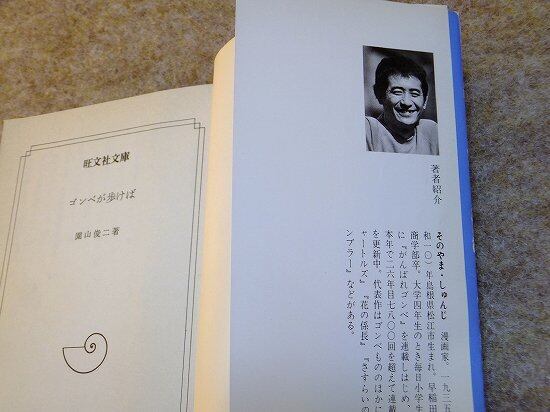 旺文社文庫
ゴンベが歩けば
園山俊二著
著者紹介
そのやま・しゅんじ　漫画家。一九三五
和一〇）年島根県松江市生まれ。早稲田
商学部卒。大学四年生のとき毎日小学生
に『がんばれゴンベ』を連載しはじめ、
本年で二六年目七八〇〇回を超えて連載
を更新中。代表作はゴンベもののほかに
ャートルズ』『花の係長』『さすらいの
ンブラー』などがある。